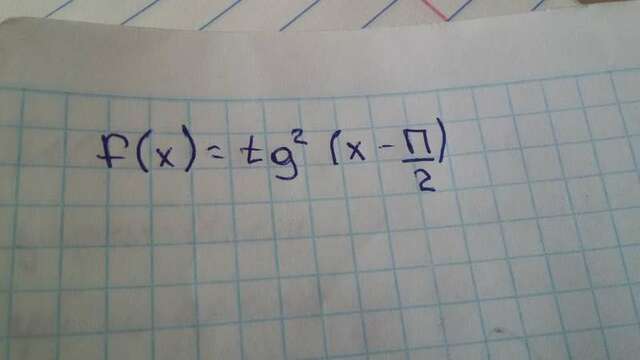 f(x) = tg² (x - П/2)